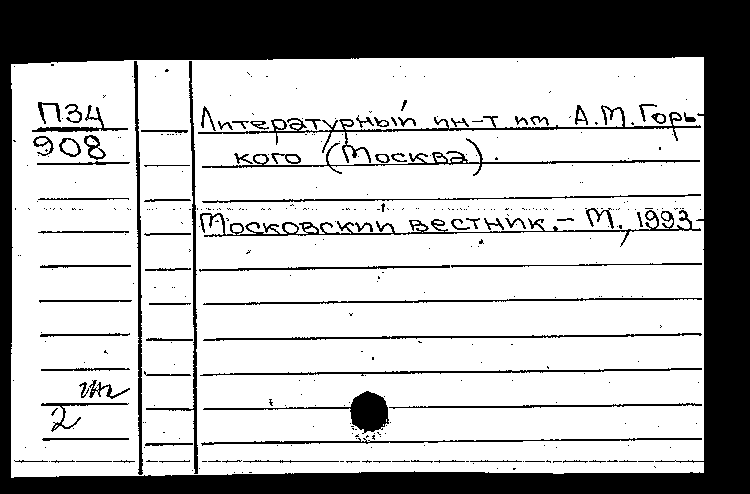 П34
908
Литературный ин-т им. А.М.Горь-
кого (Москва).
Московский вестник.- М., 1993-
2